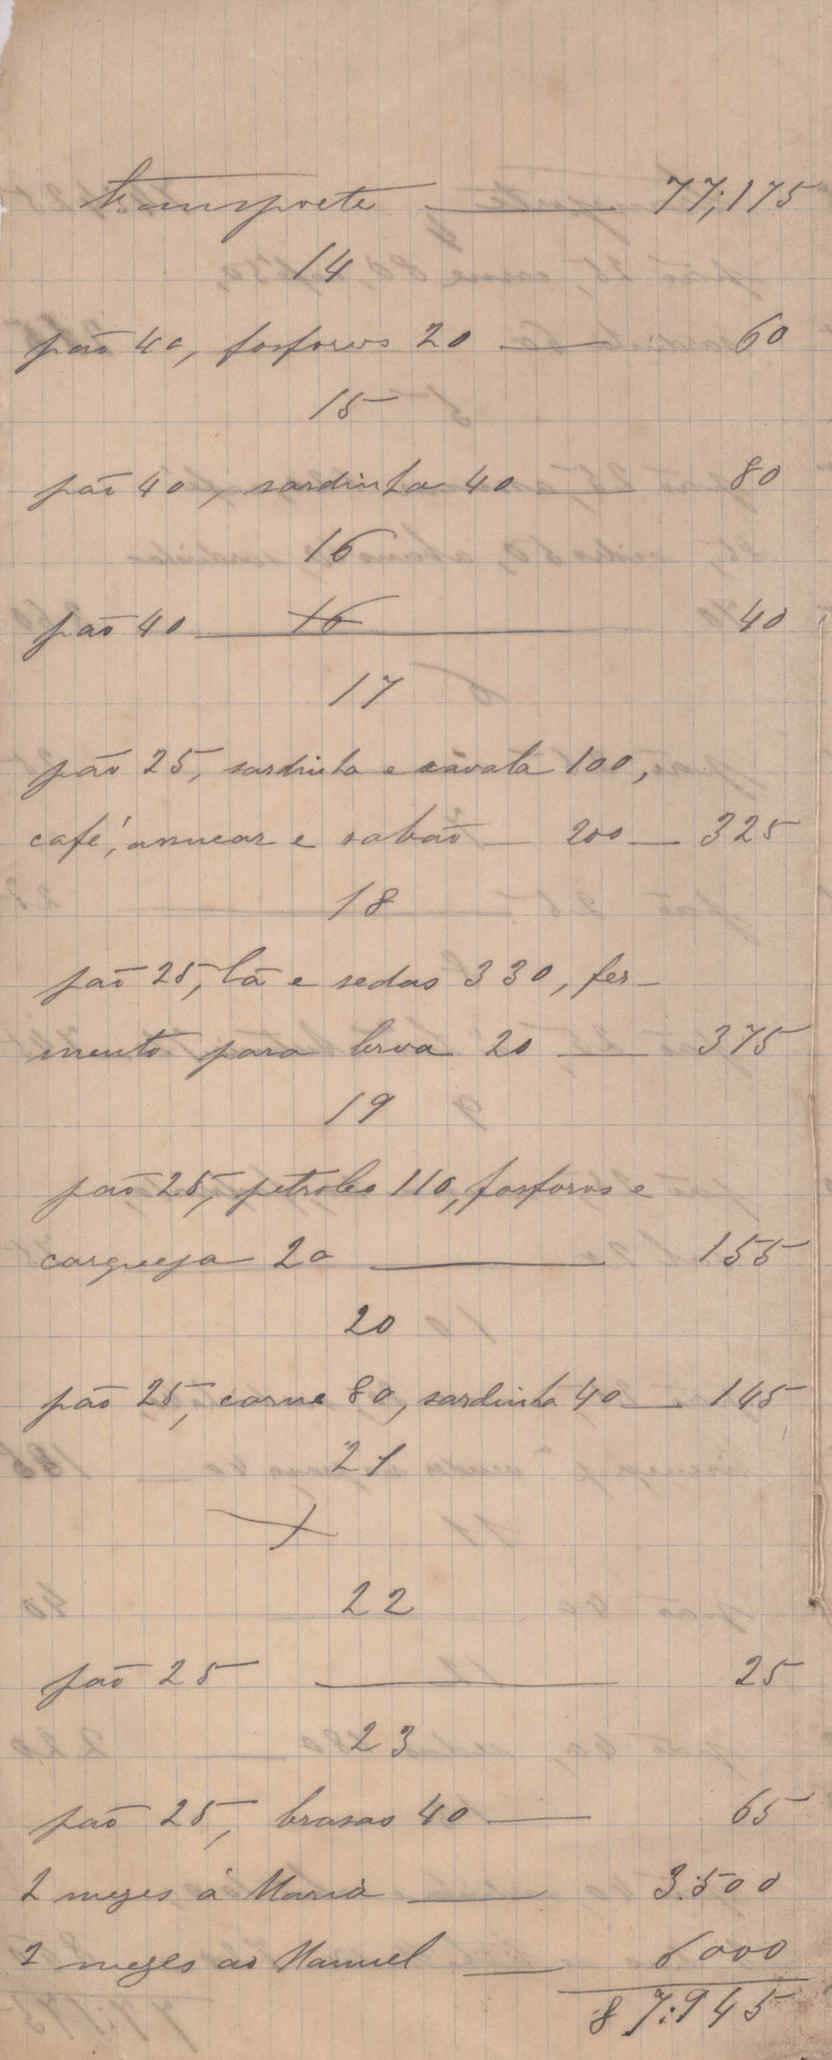 transporte — 77;175
14
pão 40, fosforos 20 — 60
15
pão 40, sardinha 40 — 80
16
pão 40 — 16 — 40
17
pão 25, sardinha e cavala 100,
café, assucar e sabão — 200 — 325
18
pão 25, lã e sedas 330, fer-
mento para broa 20 — 375
19
pão 25, petroleo 110, fosforos e
carqueja 20 — 155
20
pão 25, carne 80, sardinha 40 — 145
21
X
22
pão 25 — 25
23
pão 25, brasas 40 — 65
2 mezes á Maria — 3.500
2 mezes ao Manuel — 6000
87:945